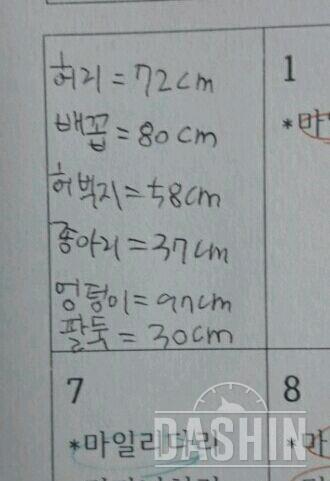 허리 = 72cm
1
배꼽 = 80cm
허벅지 = 58cm
종아리 = 37cm
엉덩이 = 97cm
팔뚝 = 30cm
7
8
*마일리다리
DASHIN